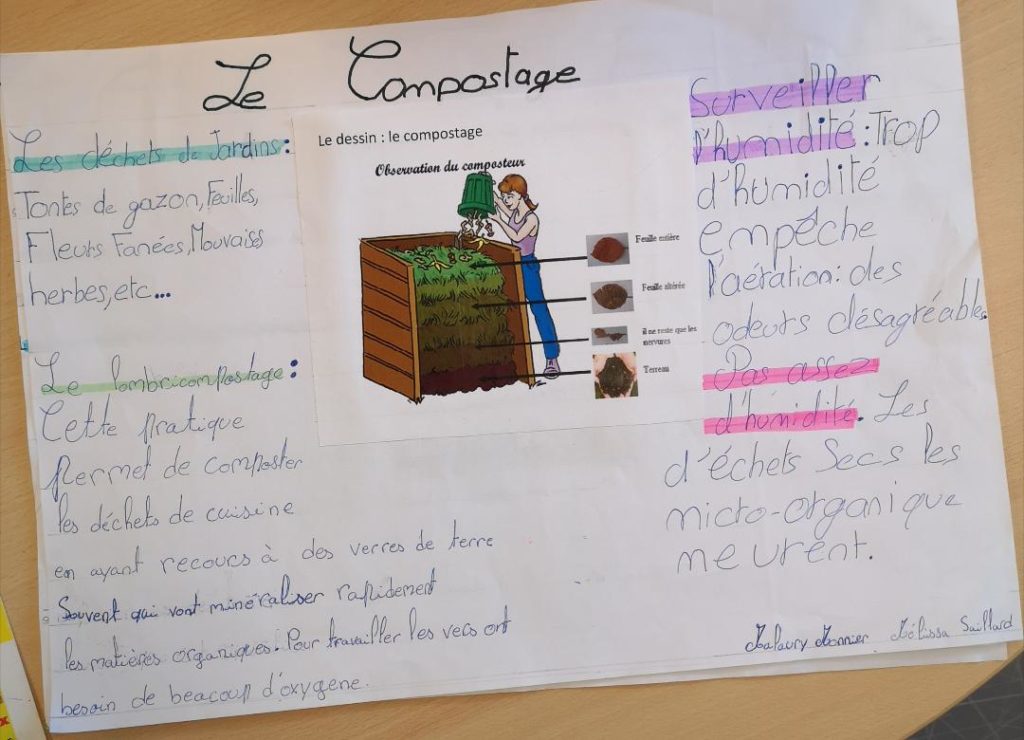 Le Compostage
Les déchets de Jardins:
Tontes de gazon, Feuilles,
Fleurs Fanées, Mauvaises
herbes, etc...
Le lombricompostage:
Cette pratique
permet de composter
les déchets de cuisine
en ayant recours à des verres de terre
Souvent qui vont minéraliser rapidement
les matières organiques. Pour travailler les vers ont
besoin de beacoup d'oxygene.
Le dessin : le compostage
Observation du composteur
Feuille entière
Feuille altérée
il ne reste que les
nervures
Terreau
Surveiller
l'humidité: Trop
d'humidité
empêche
l'aération: des
odeurs désagréables.
Pas assez
d'humidité. Les
d'échets secs les
micro-organique
meurent.
Mélissa Saillard